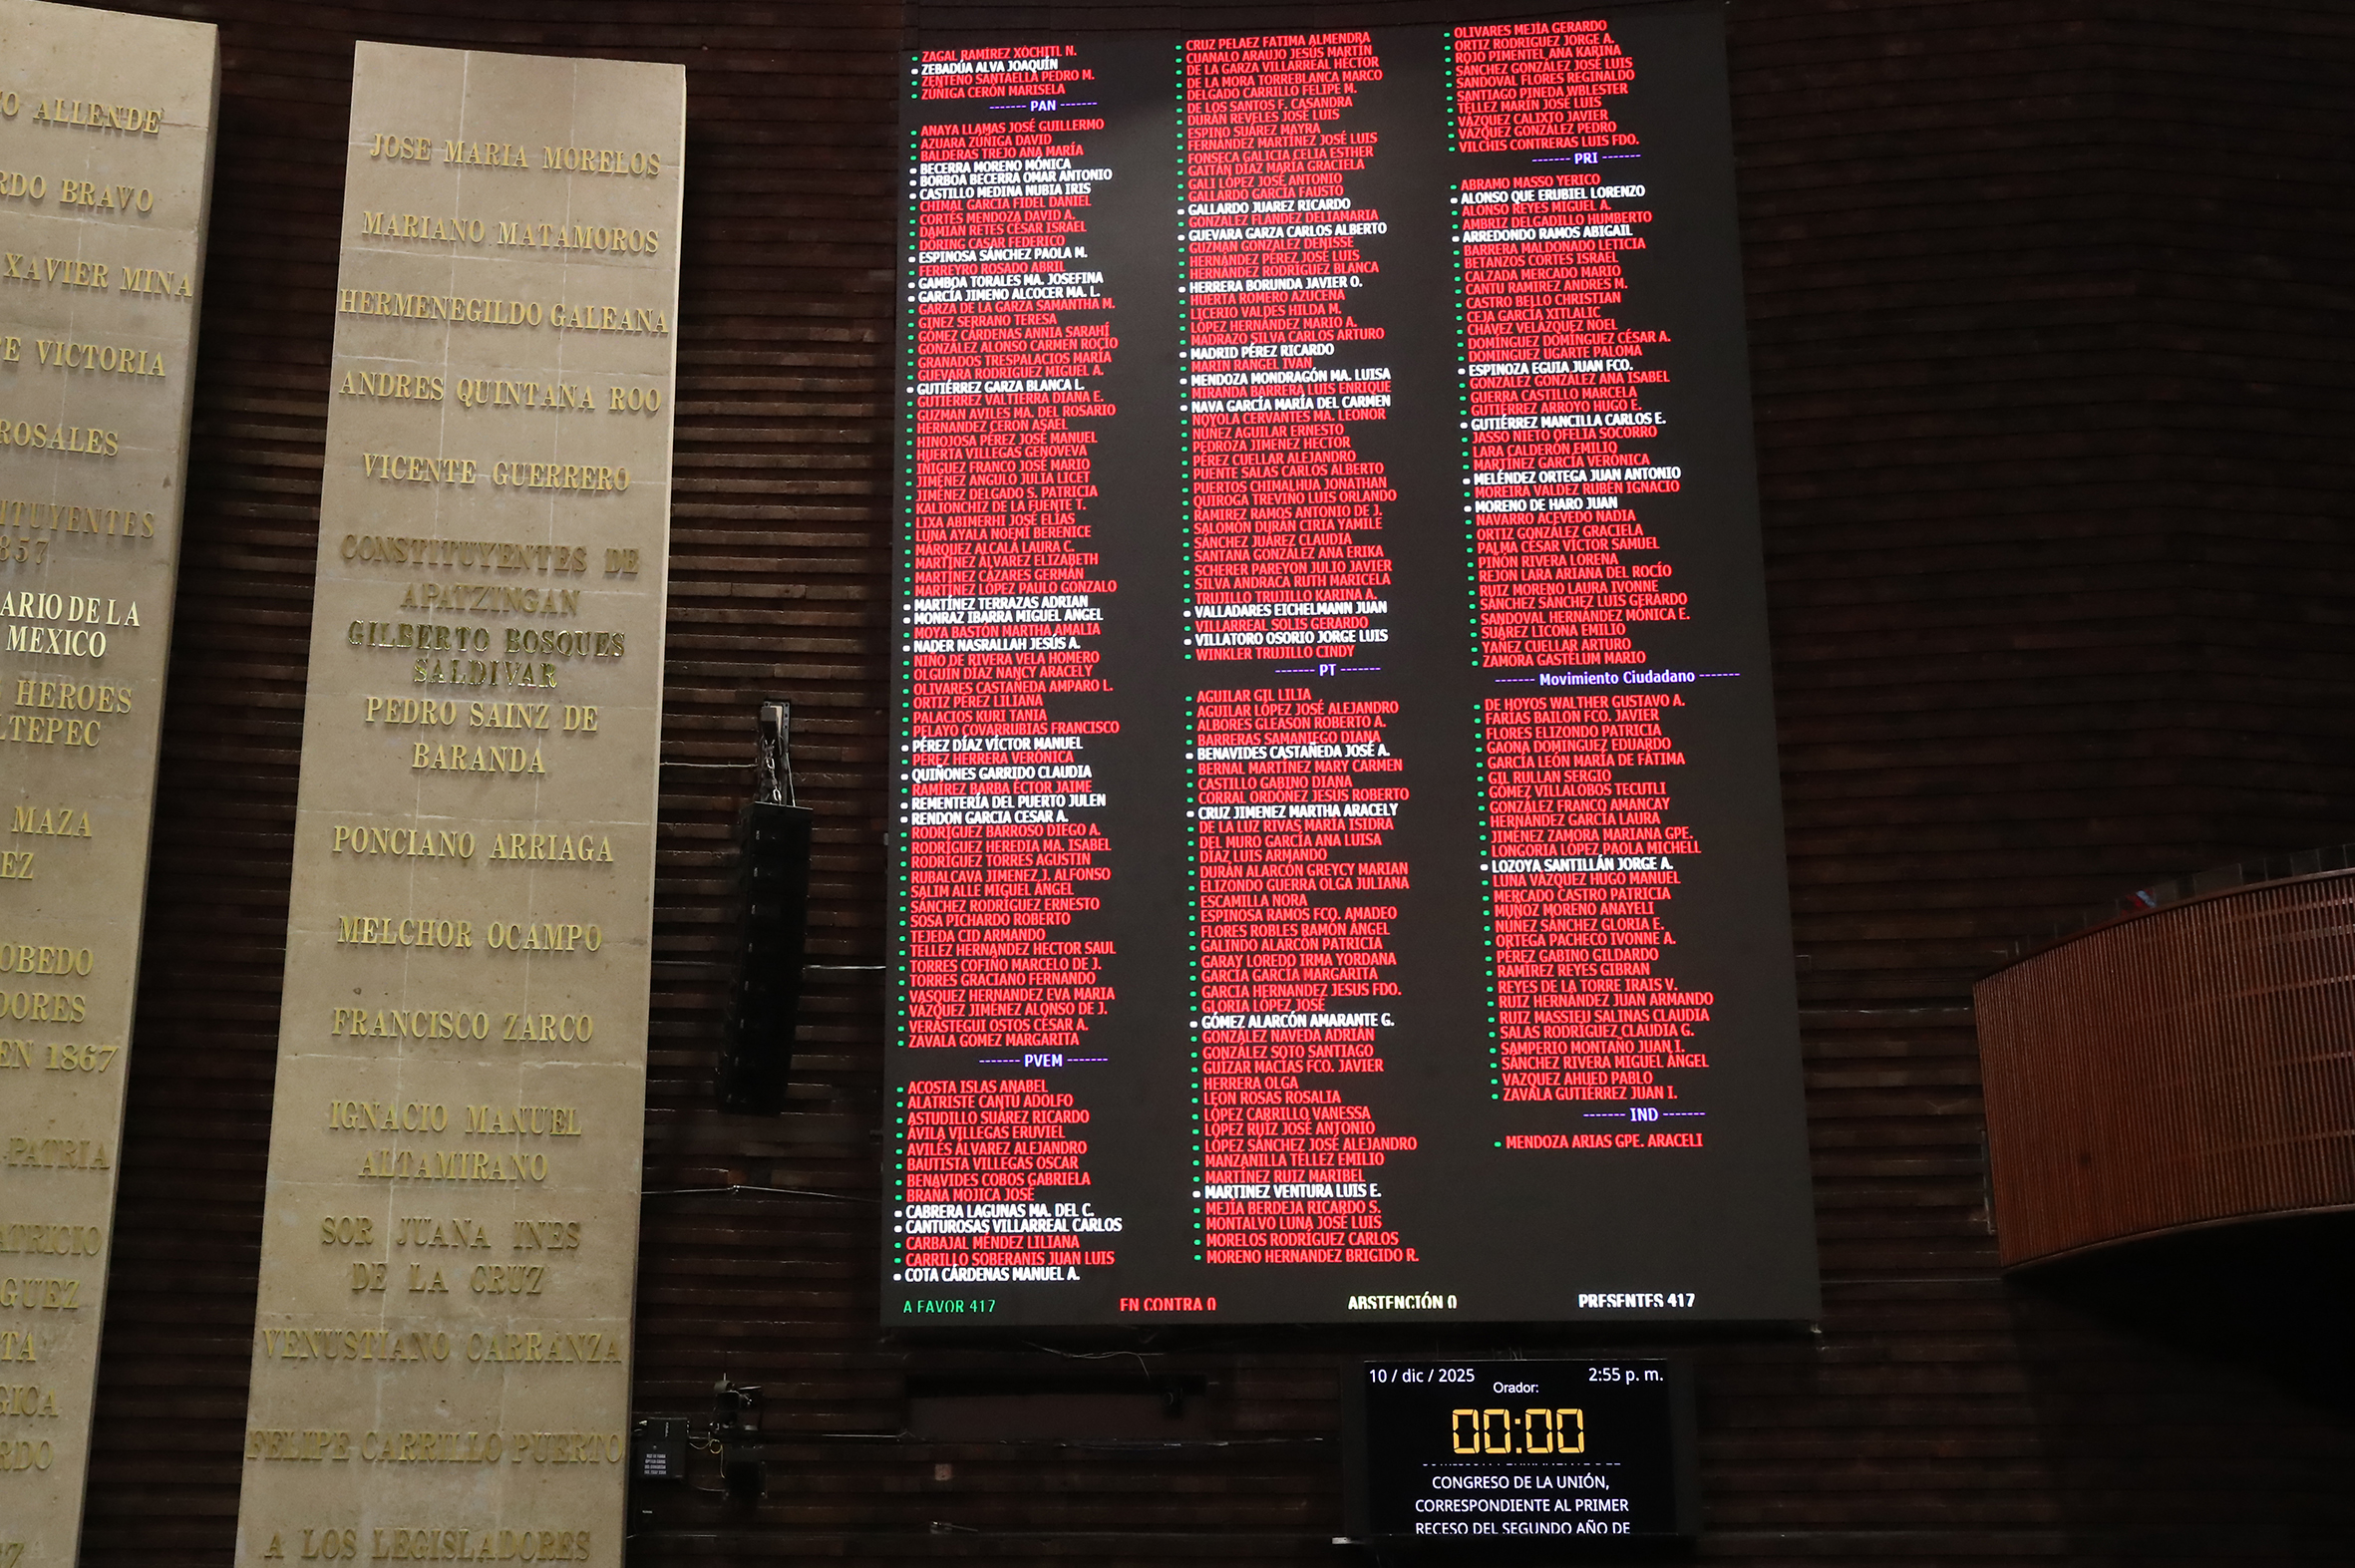 O ALLENDE
RDO BRAVO
XAVIER MINA
E VICTORIA
ROSALES
ITUYENTES
857
ARIO DE LA
MEXICO
HEROES
LTEPEC
MAZA
EZ
OBEDO
DORES
EN 1867
PATRIA
ATRICIO
GUEZ
TA
GICA
RDO
JOSE MARIA MORELOS
MARIANO MATAMOROS
HERMENEGILDO GALEANA
ANDRES QUINTANA ROO
VICENTE GUERRERO
CONSTITUYENTES DE
APATZINGAN
GILBERTO BOSQUES
SALDIVAR
PEDRO SAINZ DE
BARANDA
PONCIANO ARRIAGA
MELCHOR OCAMPO
FRANCISCO ZARCO
IGNACIO MANUEL
ALTAMIRANO
SOR JUANA INES
DE LA CRUZ
VENUSTIANO CARRANZA
FELIPE CARRILLO PUERTO
A LOS LEGISLADORES
ZAGAL RAMÍREZ XÓCHITL N.
ZEBADÚA ALVA JOAQUÍN
ZENTENO SANTAELLA PEDRO M.
ZÚÑIGA CERÓN MARISELA
------- PAN -------
ANAYA LLAMAS JOSÉ GUILLERMO
AZUARA ZÚÑIGA DAVID
BALDERAS TREJO ANA MARÍA
BECERRA MORENO MÓNICA
BORBOA BECERRA OMAR ANTONIO
CASTILLO MEDINA NUBIA IRIS
CHIMAL GARCIA FIDEL DANIEL
CORTÉS MENDOZA DAVID A.
DAMIAN RETES CÉSAR ISRAEL
DÖRING CASAR FEDERICO
ESPINOSA SÁNCHEZ PAOLA M.
FERREYRO ROSADO ABRIL
GAMBOA TORALES MA. JOSEFINA
GARCÍA JIMENO ALCOCER MA. L.
GARZA DE LA GARZA SAMANTHA M.
GINEZ SERRANO TERESA
GÓMEZ CÁRDENAS ANNIA SARAHÍ
GONZÁLEZ ALONSO CARMEN ROCÍO
GRANADOS TRESPALACIOS MARÍA
GUEVARA RODRÍGUEZ MIGUEL A.
GUTIÉRREZ GARZA BLANCA L.
GUTIERREZ VALTIERRA DIANA E.
GUZMAN AVILES MA. DEL ROSARIO
HERNANDEZ CERON ASAEL
HINOJOSA PÉREZ JOSÉ MANUEL
HUERTA VILLEGAS GENOVEVA
IÑIGUEZ FRANCO JOSÉ MARIO
JIMÉNEZ ANGULO JULIA LICET
JIMÉNEZ DELGADO S. PATRICIA
KALIONCHIZ DE LA FUENTE T.
LIXA ABIMERHI JOSÉ ELÍAS
LUNA AYALA NOEMÍ BERENICE
MÁRQUEZ ALCALÁ LAURA C.
MARTÍNEZ ÁLVAREZ ELIZABETH
MARTÍNEZ CÁZARES GERMÁN
MARTÍNEZ LÓPEZ PAULO GONZALO
MARTÍNEZ TERRAZAS ADRIAN
MONRAZ IBARRA MIGUEL ÁNGEL
MOYA BASTÓN MARTHA AMALIA
NADER NASRALLAH JESÚS A.
NIÑO DE RIVERA VELA HOMERO
OLGUÍN DÍAZ NANCY ARACELY
OLIVARES CASTAÑEDA AMPARO L.
ORTIZ PÉREZ LILIANA
PALACIOS KURI TANIA
PELAYO COVARRUBIAS FRANCISCO
PÉREZ DÍAZ VÍCTOR MANUEL
PÉREZ HERRERA VERÓNICA
QUIÑONES GARRIDO CLAUDIA
RAMÍREZ BARBA ÉCTOR JAIME
REMENTERÍA DEL PUERTO JULEN
RENDON GARCIA CESAR A.
RODRÍGUEZ BARROSO DIEGO A.
RODRÍGUEZ HEREDIA MA. ISABEL
RODRÍGUEZ TORRES AGUSTIN
RUBALCAVA JIMENEZ J. ALFONSO
SALIM ALLE MIGUEL ÁNGEL
SÁNCHEZ RODRÍGUEZ ERNESTO
SOSA PICHARDO ROBERTO
TEJEDA CID ARMANDO
TELLEZ HERNÁNDEZ HECTOR SAUL
TORRES COFIÑO MARCELO DE J.
TORRES GRACIANO FERNANDO
VASQUEZ HERNANDEZ EVA MARIA
VAZQUEZ JIMÉNEZ ALONSO DE J.
VERÁSTEGUI OSTOS CÉSAR A.
ZAVALA GOMEZ MARGARITA
------- PVEM -------
ACOSTA ISLAS ANABEL
ALATRISTE CANTÚ ADOLFO
ASTUDILLO SUÁREZ RICARDO
ÁVILA VILLEGAS ERUVIEL
AVILÉS ÁLVAREZ ALEJANDRO
BAUTISTA VILLEGAS OSCAR
BENAVIDES COBOS GABRIELA
BRAÑA MOJICA JOSÉ
CABRERA LAGUNAS MA. DEL C.
CANTUROSAS VILLARREAL CARLOS
CARBAJAL MÉNDEZ LILIANA
CARRILLO SOBERANIS JUAN LUIS
COTA CÁRDENAS MANUEL A.
CRUZ PELAEZ FATIMA ALMENDRA
CUANALO ARAUJO JESÚS MARTÍN
DE LA GARZA VILLARREAL HÉCTOR
DE LA MORA TORREBLANCA MARCO
DELGADO CARRILLO FELIPE M.
DE LOS SANTOS F. CASANDRA
DURÁN REVELES JOSÉ LUIS
ESPINO SUÁREZ MAYRA
FERNÁNDEZ MARTÍNEZ JOSÉ LUIS
FONSECA GALICIA CELIA ESTHER
GAITÁN DÍAZ MARÍA GRACIELA
GALI LÓPEZ JOSÉ ANTONIO
GALLARDO GARCÍA FAUSTO
GALLARDO JUAREZ RICARDO
GONZÁLEZ FLÁNDEZ DELIAMARIA
GUEVARA GARZA CARLOS ALBERTO
GUZMÁN GONZÁLEZ DENISSE
HERNÁNDEZ PÉREZ JOSÉ LUIS
HERNÁNDEZ RODRÍGUEZ BLANCA
HERRERA BORUNDA JAVIER O.
HUERTA ROMERO AZUCENA
LICERIO VALDES HILDA M.
LÓPEZ HERNÁNDEZ MARIO A.
MADRAZO SILVA CARLOS ARTURO
MADRID PÉREZ RICARDO
MARÍN RANGEL IVAN
MENDOZA MONDRAGÓN MA. LUISA
MIRANDA BARRERA LUIS ENRIQUE
NAVA GARCÍA MARÍA DEL CARMEN
NOYOLA CERVANTES MA. LEONOR
NÚÑEZ AGUILAR ERNESTO
PEDROZA JIMENEZ HECTOR
PÉREZ CUELLAR ALEJANDRO
PUENTE SALAS CARLOS ALBERTO
PUERTOS CHIMALHUA JONATHAN
QUIROGA TREVIÑO LUIS ORLANDO
RAMIREZ RAMOS ANTONIO DE J.
SALOMÓN DURÁN CIRIA YAMILE
SÁNCHEZ JUÁREZ CLAUDIA
SANTANA GONZÁLEZ ANA ERIKA
SCHERER PAREYON JULIO JAVIER
SILVA ANDRACA RUTH MARICELA
TRUJILLO TRUJILLO KARINA A.
VALLADARES EICHELMANN JUAN
VILLARREAL SOLIS GERARDO
VILLATORO OSORIO JORGE LUIS
WINKLER TRUJILLO CINDY
------- PT -------
AGUILAR GIL LILIA
AGUILAR LÓPEZ JOSÉ ALEJANDRO
ALBORES GLEASON ROBERTO A.
BARRERAS SAMANIEGO DIANA
BENAVIDES CASTAÑEDA JOSÉ A.
BERNAL MARTÍNEZ MARY CARMEN
CASTILLO GABINO DIANA
CORRAL ORDÓÑEZ JESÚS ROBERTO
CRUZ JIMENEZ MARTHA ARACELY
DE LA LUZ RIVAS MARÍA ISIDRA
DEL MURO GARCÍA ANA LUISA
DÍAZ LUIS ARMANDO
DURÁN ALARCÓN GREYCY MARIAN
ELIZONDO GUERRA OLGA JULIANA
ESCAMILLA NORA
ESPINOSA RAMOS FCO. AMADEO
FLORES ROBLES RAMÓN ÁNGEL
GALINDO ALARCÓN PATRICIA
GARAY LOREDO IRMA YORDANA
GARCÍA GARCÍA MARGARITA
GARCIA HERNANDEZ JESUS FDO.
GLORIA LÓPEZ JOSÉ
GÓMEZ ALARCÓN AMARANTE G.
GONZÁLEZ NAVEDA ADRIÁN
GONZÁLEZ SOTO SANTIAGO
GUIZAR MACÍAS FCO. JAVIER
HERRERA OLGA
LEÓN ROSAS ROSALIA
LÓPEZ CARRILLO VANESSA
LÓPEZ RUÍZ JOSÉ ANTONIO
LÓPEZ SÁNCHEZ JOSÉ ALEJANDRO
MANZANILLA TÉLLEZ EMILIO
MARTÍNEZ RUIZ MARIBEL
MARTINEZ VENTURA LUIS E.
MEJÍA BERDEJA RICARDO S.
MONTALVO LUNA JOSÉ LUIS
MORELOS RODRÍGUEZ CARLOS
MORENO HERNANDEZ BRIGIDO R.
OLIVARES MEJÍA GERARDO
ORTIZ RODRIGUEZ JORGE A.
ROJO PIMENTEL ANA KARINA
SÁNCHEZ GONZÁLEZ JOSÉ LUIS
SANDOVAL FLORES REGINALDO
SANTIAGO PINEDA WBLESTER
TÉLLEZ MARÍN JOSÉ LUIS
VÁZQUEZ CALIXTO JAVIER
VÁZQUEZ GONZÁLEZ PEDRO
VILCHIS CONTRERAS LUIS FDO.
------- PRI -------
ABRAMO MASSO YERICO
ALONSO QUE ERUBIEL LORENZO
ALONSO REYES MIGUEL A.
AMBRIZ DELGADILLO HUMBERTO
ARREDONDO RAMOS ABIGAIL
BARRERA MALDONADO LETICIA
BETANZOS CORTES ISRAEL
CALZADA MERCADO MARIO
CANTU RAMIREZ ANDRES M.
CASTRO BELLO CHRISTIAN
CEJA GARCÍA XITLALIC
CHÁVEZ VELÁZQUEZ NOEL
DOMÍNGUEZ DOMÍNGUEZ CÉSAR A.
DOMINGUEZ UGARTE PALOMA
ESPINOZA EGUIA JUAN FCO.
GONZÁLEZ GONZÁLEZ ANA ISABEL
GUERRA CASTILLO MARCELA
GUTIÉRREZ ARROYO HUGO E.
GUTIÉRREZ MANCILLA CARLOS E.
JASSO NIETO OFELIA SOCORRO
LARA CALDERÓN EMILIO
MARTÍNEZ GARCÍA VERÓNICA
MELÉNDEZ ORTEGA JUAN ANTONIO
MOREIRA VALDEZ RUBÉN IGNACIO
MORENO DE HARO JUAN
NAVARRO ACEVEDO NADIA
ORTIZ GONZÁLEZ GRACIELA
PALMA CÉSAR VÍCTOR SAMUEL
PIÑÓN RIVERA LORENA
REJÓN LARA ARIANA DEL ROCÍO
RUIZ MORENO LAURA IVONNE
SÁNCHEZ SÁNCHEZ LUIS GERARDO
SANDOVAL HERNÁNDEZ MÓNICA E.
SUÁREZ LICONA EMILIO
YAÑEZ CUELLAR ARTURO
ZAMORA GASTÉLUM MARIO
------- Movimiento Ciudadano -------
DE HOYOS WALTHER GUSTAVO A.
FARÍAS BAILON FCO. JAVIER
FLORES ELIZONDO PATRICIA
GAONA DOMINGUEZ EDUARDO
GARCÍA LEÓN MARÍA DE FÁTIMA
GIL RULLAN SERGIO
GÓMEZ VILLALOBOS TECUTLI
GONZÁLEZ FRANCO AMANCAY
HERNÁNDEZ GARCÍA LAURA
JIMÉNEZ ZAMORA MARIANA GPE.
LONGORIA LÓPEZ PAOLA MICHELL
LOZOYA SANTILLÁN JORGE A.
LUNA VÁZQUEZ HUGO MANUEL
MERCADO CASTRO PATRICIA
MUÑOZ MORENO ANAYELI
NÚÑEZ SÁNCHEZ GLORIA E.
ORTEGA PACHECO IVONNE A.
PÉREZ GABINO GILDARDO
RAMÍREZ REYES GIBRAN
REYES DE LA TORRE IRAIS V.
RUIZ HERNÁNDEZ JUAN ARMANDO
RUIZ MASSIEU SALINAS CLAUDIA
SALAS RODRÍGUEZ CLAUDIA G.
SAMPERIO MONTAÑO JUAN I.
SÁNCHEZ RIVERA MIGUEL ÁNGEL
VAZQUEZ AHUED PABLO
ZAVALA GUTIÉRREZ JUAN I.
------- IND -------
MENDOZA ARIAS GPE. ARACELI
A FAVOR 417 EN CONTRA 0 ABSTENCIÓN 0 PRESENTES 417
10 / dic / 2025 2:55 p. m.
Orador:
00:00
CONGRESO DE LA UNIÓN,
CORRESPONDIENTE AL PRIMER
RECESO DEL SEGUNDO AÑO DE